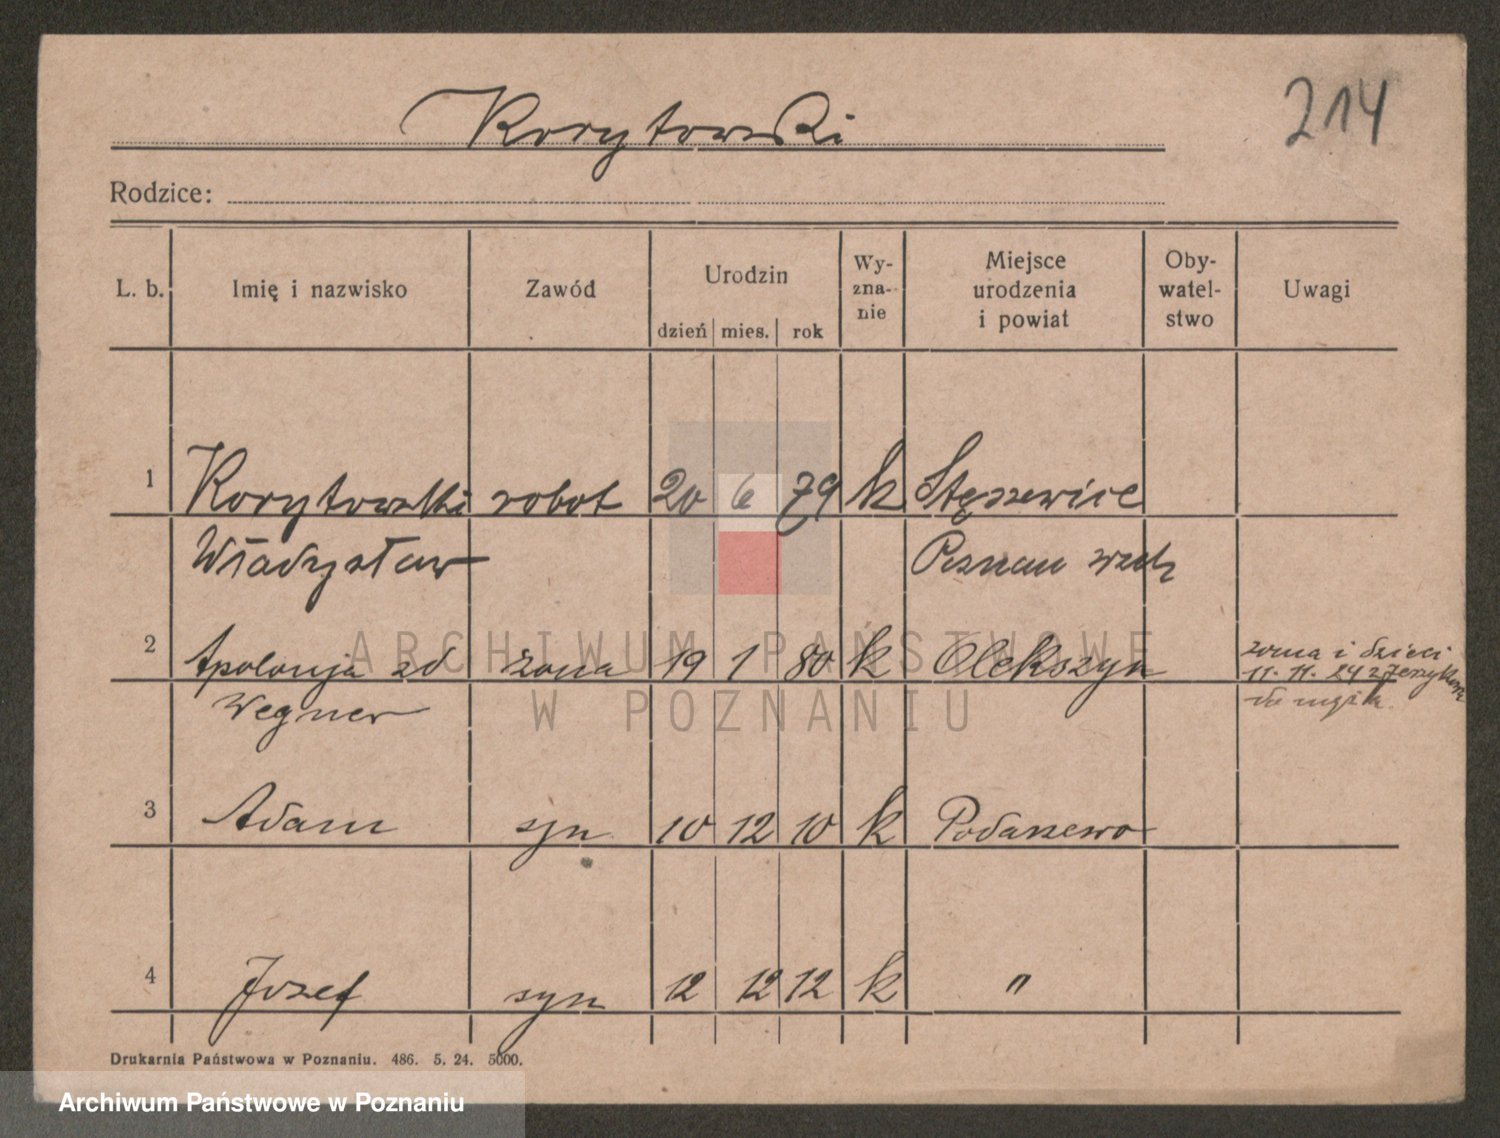 214
Korytowski
Rodzice:
L. b. Imię i nazwisko Zawód Urodzin dzień mies. rok Wy-zna-nie Miejsce urodzenia i powiat Oby-watel-stwo Uwagi
1 Korytowski robot 20 6 79 k Stęszewice
Władysław Poznan wsch
2 Apolonja zd żona 19 1 80 k Olekszyn żona i dzieci
Wegner 11. 11. 24 z
do męża
3 Adam syn 10 12 10 k Podarzewo
4 Jozef syn 12 12 12 k "
Drukarnia Państwowa w Poznaniu. 486. 5. 24. 5000.
ARCHIWUM PAŃSTWOWE
W POZNANIU
Archiwum Państwowe w Poznaniu